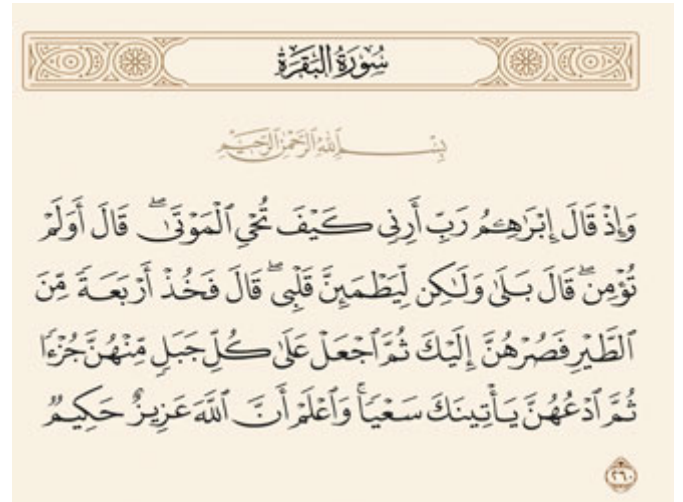 سُورَةُ البَقَرَةِ
بِسْمِ ٱللَّهِ ٱلرَّحْمَٰنِ ٱلرَّحِيمِ
وَإِذْ قَالَ إِبْرَٰهِـۧمُ رَبِّ أَرِنِى كَيْفَ تُحْىِ ٱلْمَوْتَىٰ ۖ قَالَ أَوَلَمْ
تُؤْمِن ۖ قَالَ بَلَىٰ وَلَـٰكِن لِّيَطْمَئِنَّ قَلْبِى ۖ قَالَ فَخُذْ أَرْبَعَةً مِّنَ
ٱلطَّيْرِ فَصُرْهُنَّ إِلَيْكَ ثُمَّ ٱجْعَلْ عَلَىٰ كُلِّ جَبَلٍ مِّنْهُنَّ جُزْءًا
ثُمَّ ٱدْعُهُنَّ يَأْتِينَكَ سَعْيًا ۚ وَٱعْلَمْ أَنَّ ٱللَّهَ عَزِيزٌ حَكِيمٌ
٢٦٠